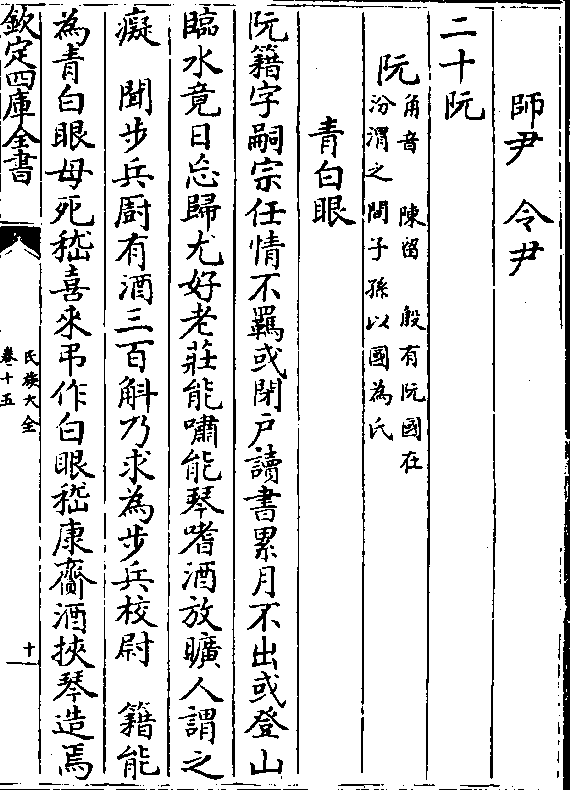 師尹　令尹
二十阮
阮
角音　陳留　殷有阮國在
汾渭之間子孫以國為氏
青白眼
阮籍字嗣宗任情不羈或閉戸讀書累月不出或登山
臨水竟日忘歸尤好老莊能嘯能琴嗜酒放曠人謂之
癡　聞步兵厨有酒三百斛乃求為步兵校尉　籍能
為青白眼母死嵇喜來弔作白眼嵇康齎酒挾琴造焉
欽定四庫全書
氏族大全
卷十五
十